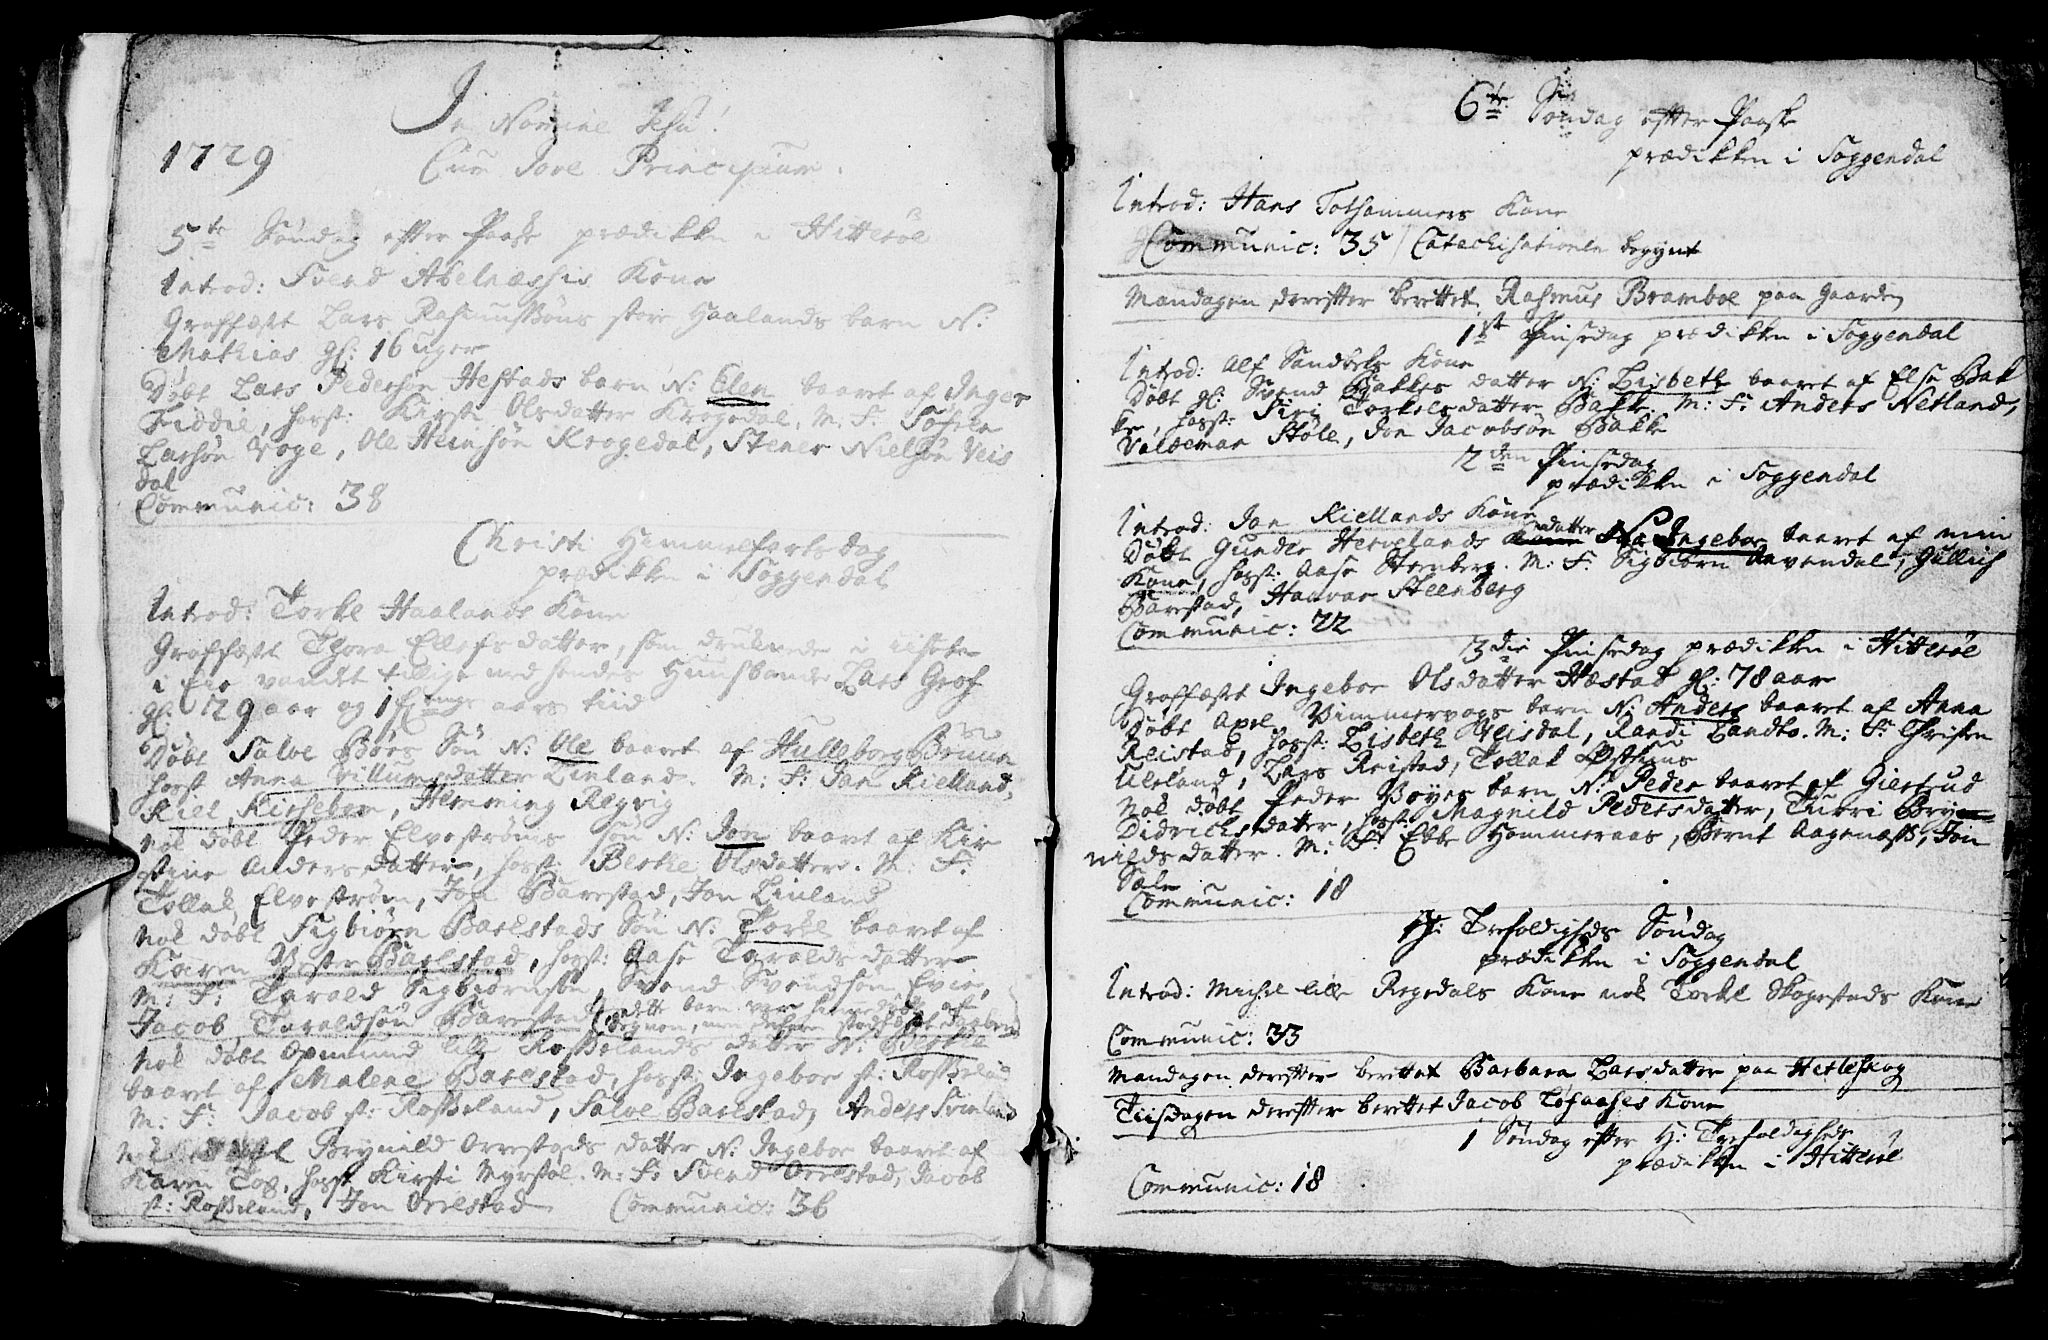 In Nomine Jesu!
1729
Cum Jove Principium.
5te Søndag efter Paaske prædikken i Hitterøe
Introd: Svend Abelnæssis Kone
Graffæst Lars Rasmussøns store Haalands barn N:
Mathias gl: 16 uger
Døbt Lars Pedersøn Hestads barn N: Elen baaret af Inger
Fiddie, hosst: Kirsti Olsdatter Krogedal, M. F. Søfren
Larsøn Voge, Ole Heinsøn Krogedal, Stener Nielsøn Veis
dal
Communic: 38
Christi Himmelfartsdag
prædikken i Soggendal
Introd: Torkel Haalands Kone
Graffæst Thora Ellefsdatter, som druknede i
i Eie vandet tillige med hendes Huusbande Lars Grof
gl: 29 aar og 1 aars tiid
Døbt Salve Børs Søn N: Ole baaret af Hulleborg Bruun
hosst Anna Villumsdatter Linland. M: F: Jan Kielland,
Kiel Kirsebom, Hemming Regvig
Nok døbt Peder Elvestrøms søn N: Jon baaret af Kir
stine Andersdatter, hosst: Berthe Olsdatter. M: F:
Tollak Elvestrøm, Jon Barestad, Jon Linland
Nok døbt Sigbiørn Barestads Søn N: Torkel baaret af
Karen Vester Barestad, hosst: Aase Taralds datter
M: F: Tarald Sigbiørnsøn, Svend Svendsøn Evie,
Jacob Taraldsøn Barestad (dette barn var hiemmedøbt af
degnen, men derhen stadfæstet daaben
Nok døbt Opmund lille Rosselands datter N: Berthe
baaret af Malene Barestad, hosst: Ingebor st: Rosseland
M: F: Jacob st: Rosseland, Salve Barestad, Anders Svinland
Nok døbt Brynild Orrestads datter N: Ingebor baaret af
Karen Tos, hosst Kirsti Myrstøl. M: F: Svend Orrestad, Jacob
st: Rosseland, Jon Orrestad Communic: 36
6te Søndag efter Paaske
prædikken i Soggendal
Introd: Hans Tothammers Kone
Communic: 35 / Catechisationen begynt
Mandagen derefter berettet Rasmus Bramboe paa Gaarden
1st Pinsedag prædikken i Soggendal
Introd: Alf Sandbeks Kone
Døbt gl: Svend Bakkes datter N: Lisbeth baaret af Else Bak
ke, hosst: Siri Torkelsdatter Bakke. M: F: Anders Netland,
Valdemar Støle, Jon Jacobsøn Bakke
2den Pinsedag
prædikken i Soggendal
Introd: Jan Kiellands Kone
Døbt Gunder Hervelands datter N: Ingebor baaret af min
Kone, hosst: Aase Stenberg. M: F: Sigbiørn Aavendal, Gullich
Barestad, Haavar Steenberg
Communic: 22
3die Pinsedag prædikken i Hitterøe
Graffæstet Ingebor Olsdatter Hæstad gl: 78 aar
Døbt Apel Vimmervogs barn N: Anders baaret af Anna
Reistad, hosst: Lisbeth Veisdal, Randi Landto. M: F: Thristen
Ueland, Lars Reistad, Tollak Østhuus
Nok døbt Peder Bøyes barn N: Peder baaret af Giertrud
Didrichsdatter, hosst: Magnild Pedersdatter, Turri Bry
nildsdatter. M: F: Ebbe Hommeraas, Bernt Aagenæss, Jon
Sæle
Communic: 18
H: Trefoldigheds Søndag
prædikken i Soggendal
Introd: Michel lille Regedals Kone nok Torkel Skogestads Kone
Communic: 33
Mandagen derefter berettet Barbara Larsdatter paa Hetleskog
Tiisdagen derefter berettet Jacob Tofaases Kone
1 Søndag efter H: Trefoldigheds
prædikken i Hitterøe
Communic: 18